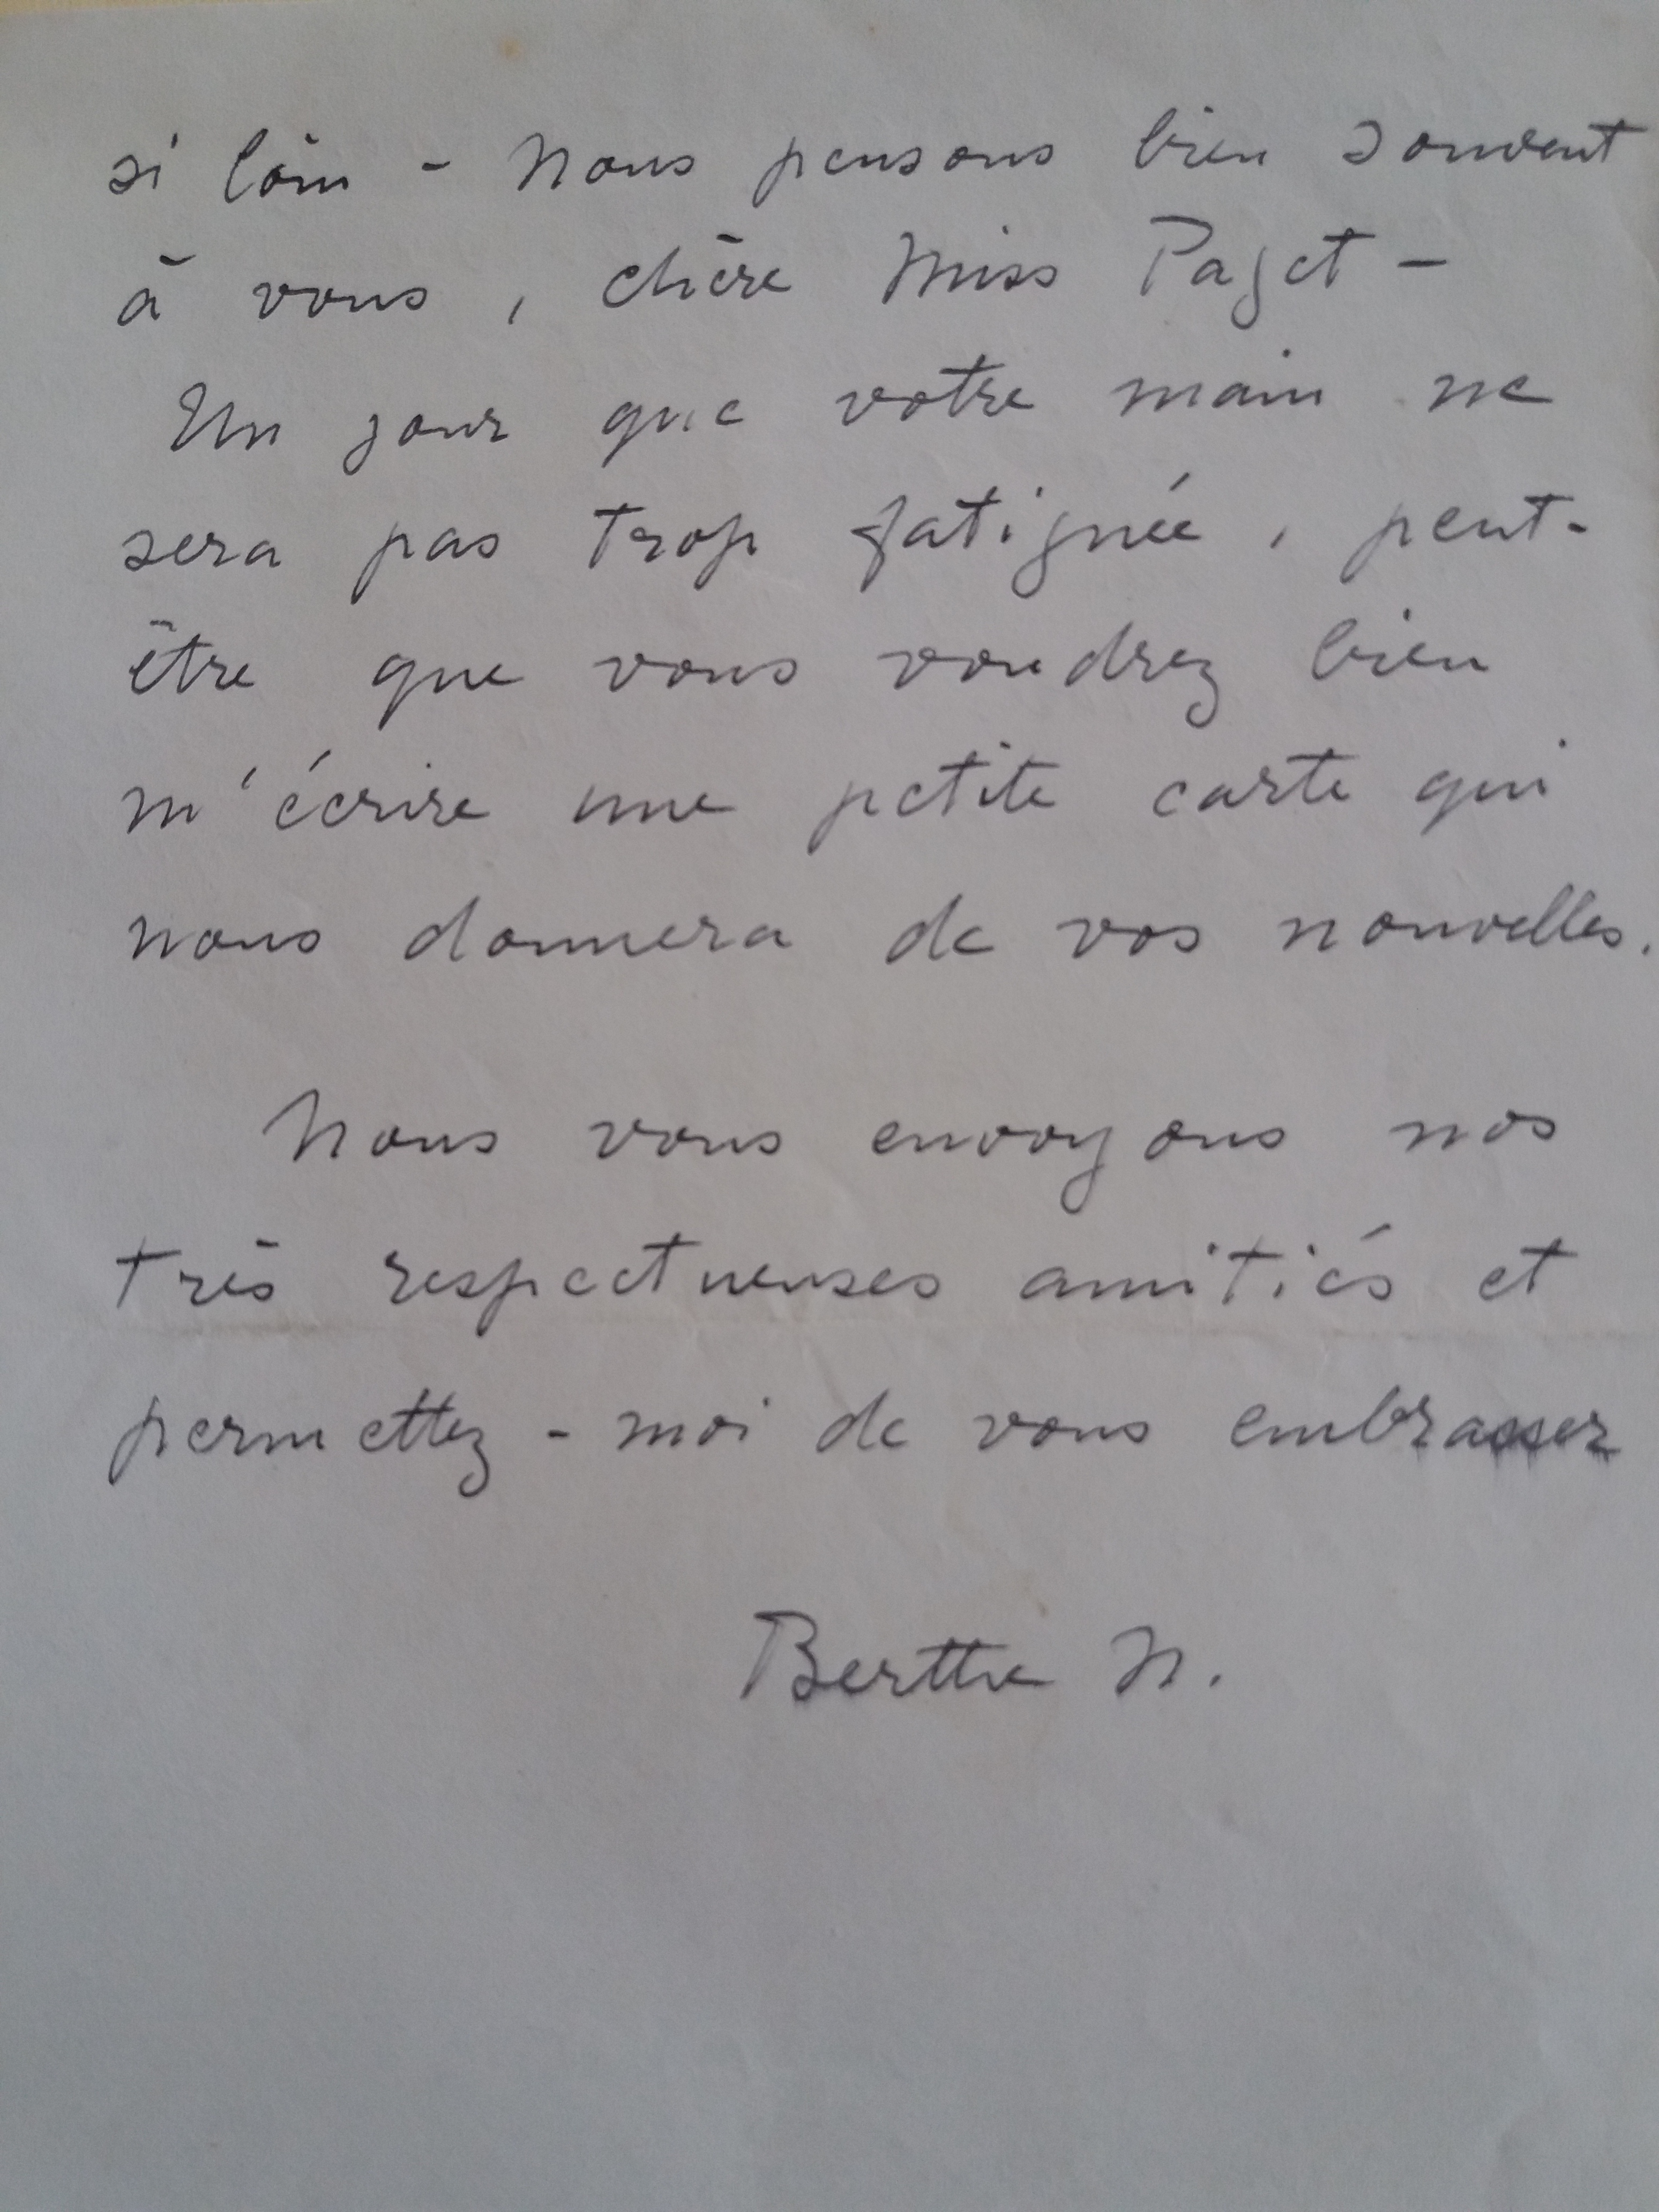 si loin - Nous pensons bien souvent
à vous, chère Miss Paget -
Un jour que votre main ne
sera pas trop fatignée, peut-
être que vous voudrez bien
m'écrire une petite carte qui
nous donnera de vos nouvelles.
Nous vous envoyons nos
très respectueuses amitiés et
permettez-moi de vous embrasser
Berthe N.